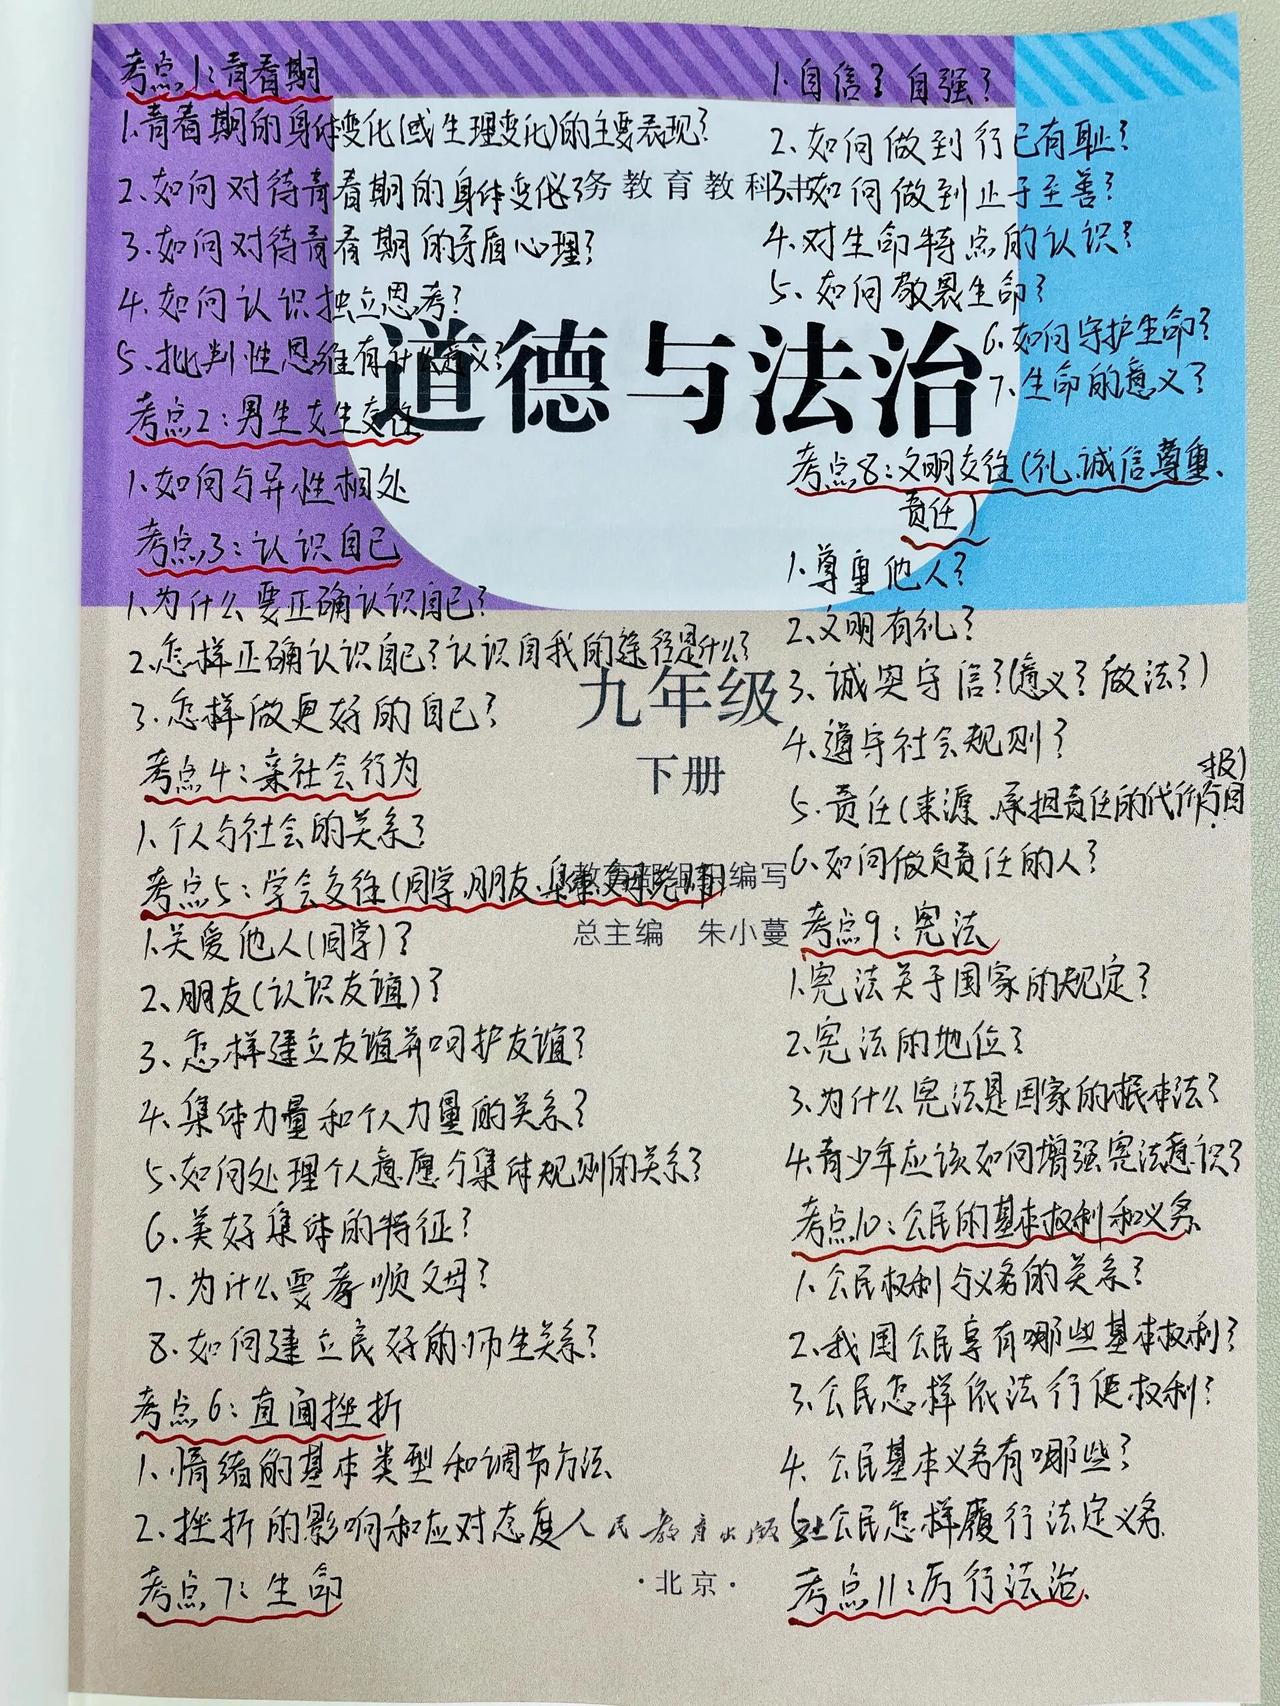 考点1：青春期
1.青春期的身体变化(或生理变化)的主要表现？
2.如何对待青春期的身体变化？
3.如何对待青春期的矛盾心理？
4.如何认识独立思考？
5.批判性思维有什么意义？
考点2：男生女生交往
1.如何与异性相处
考点3：认识自己
1.为什么要正确认识自己？
2.怎样正确认识自己？认识自我的途径是什么？
3.怎样做更好的自己？
考点4：亲社会行为
1.个人与社会的关系？
考点5：学会交往(同学、朋友、集体、
1.关爱他人(同学)？
2.朋友(认识友谊)？
3.怎样建立友谊并呵护友谊？
4.集体力量和个人力量的关系？
5.如何处理个人意愿与集体规则的关系？
6.美好集体的特征？
7.为什么要孝顺父母？
8.如何建立良好的师生关系？
考点6：直面挫折
1.情绪的基本类型和调节方法
2.挫折的影响和应对态度
考点7：生命
务教育教科书
道德与法治
九年级
下册
教育部组织编写
总主编 朱小蔓
人民教育出版社
·北京·
1.自信？自强？
2.如何做到行己有耻？
3.如何做到止于至善？
4.对生命特点的认识？
5.如何敬畏生命？
6.如何守护生命？
7.生命的意义？
考点8：文明交往(礼、诚信、尊重、
责任)
1.尊重他人？
2.文明有礼？
3.诚实守信？(意义？做法？)
4.遵守社会规则？
5.责任(来源、承担责任的代价与回
报)
6.如何做负责任的人？
考点9：宪法
1.宪法关于国家的规定？
2.宪法的地位？
3.为什么宪法是国家的根本法？
4.青少年应该如何增强宪法意识？
考点10：公民的基本权利和义务
1.公民权利与义务的关系？
2.我国公民享有哪些基本权利？
3.公民怎样依法行使权利？
4.公民基本义务有哪些？
5.公民怎样履行法定义务
考点11：厉行法治